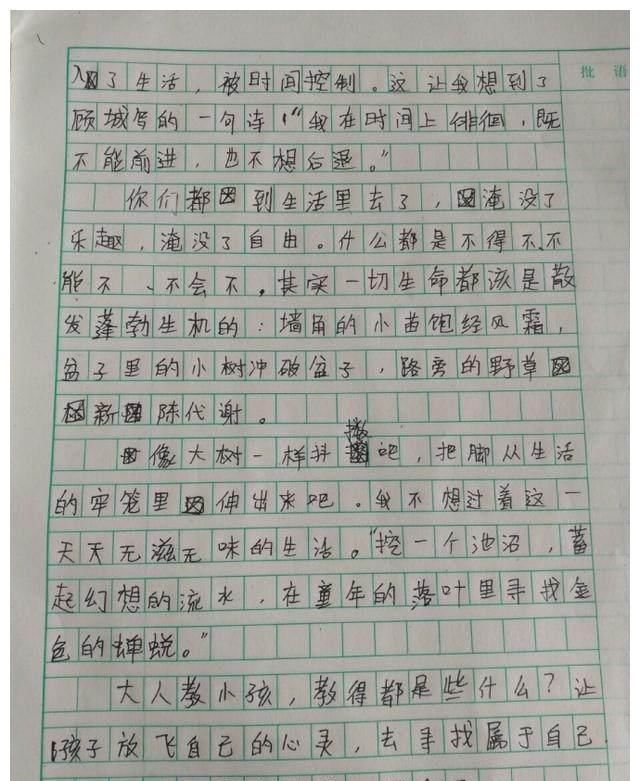 批语
入了生活，被时间控制。这让我想到了
顾城写的一句诗，“我在时间上徘徊，既
不能前进，也不想后退。”
你们都到生活里去了，淹没了
乐趣，淹没了自由。什么都是不得不、不
能不、不会不，其实一切生命都该是散
发蓬勃生机的：墙角的小苗饱经风霜，
盆子里的小树冲破盆子，路旁的野草
新陈代谢。
像大树一样抖擞吧，把脚从生活
的牢笼里伸出来吧。我不想过着这一
天天无滋无味的生活。“挖一个池沼，蓄
起幻想的流水，在童年的落叶里寻找金
色的蝉蜕。”
大人教小孩，教得都是些什么？让
孩子放飞自己的心灵，去寻找属于自己